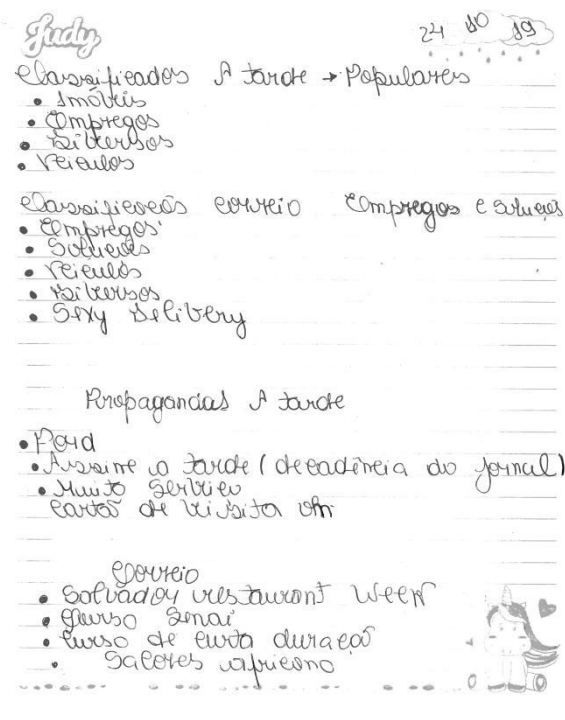 Judy 24 10 19
Classificados A tarde → Populares
• Imóveis
• Empregos
• Diversos
• Veiculos
Classificados correio Empregos e soluções
• Empregos
• Soluções
• Veiculos
• Diversos
• Sexy Delivery
Propagandas A tarde
• Ford
• Assine a tarde (decadência do jornal)
• Muito serviço
cartão de visita
Correio
• Salvador restaurant Week
• Curso Senai
• Curso de curta duração
• Sabores africano